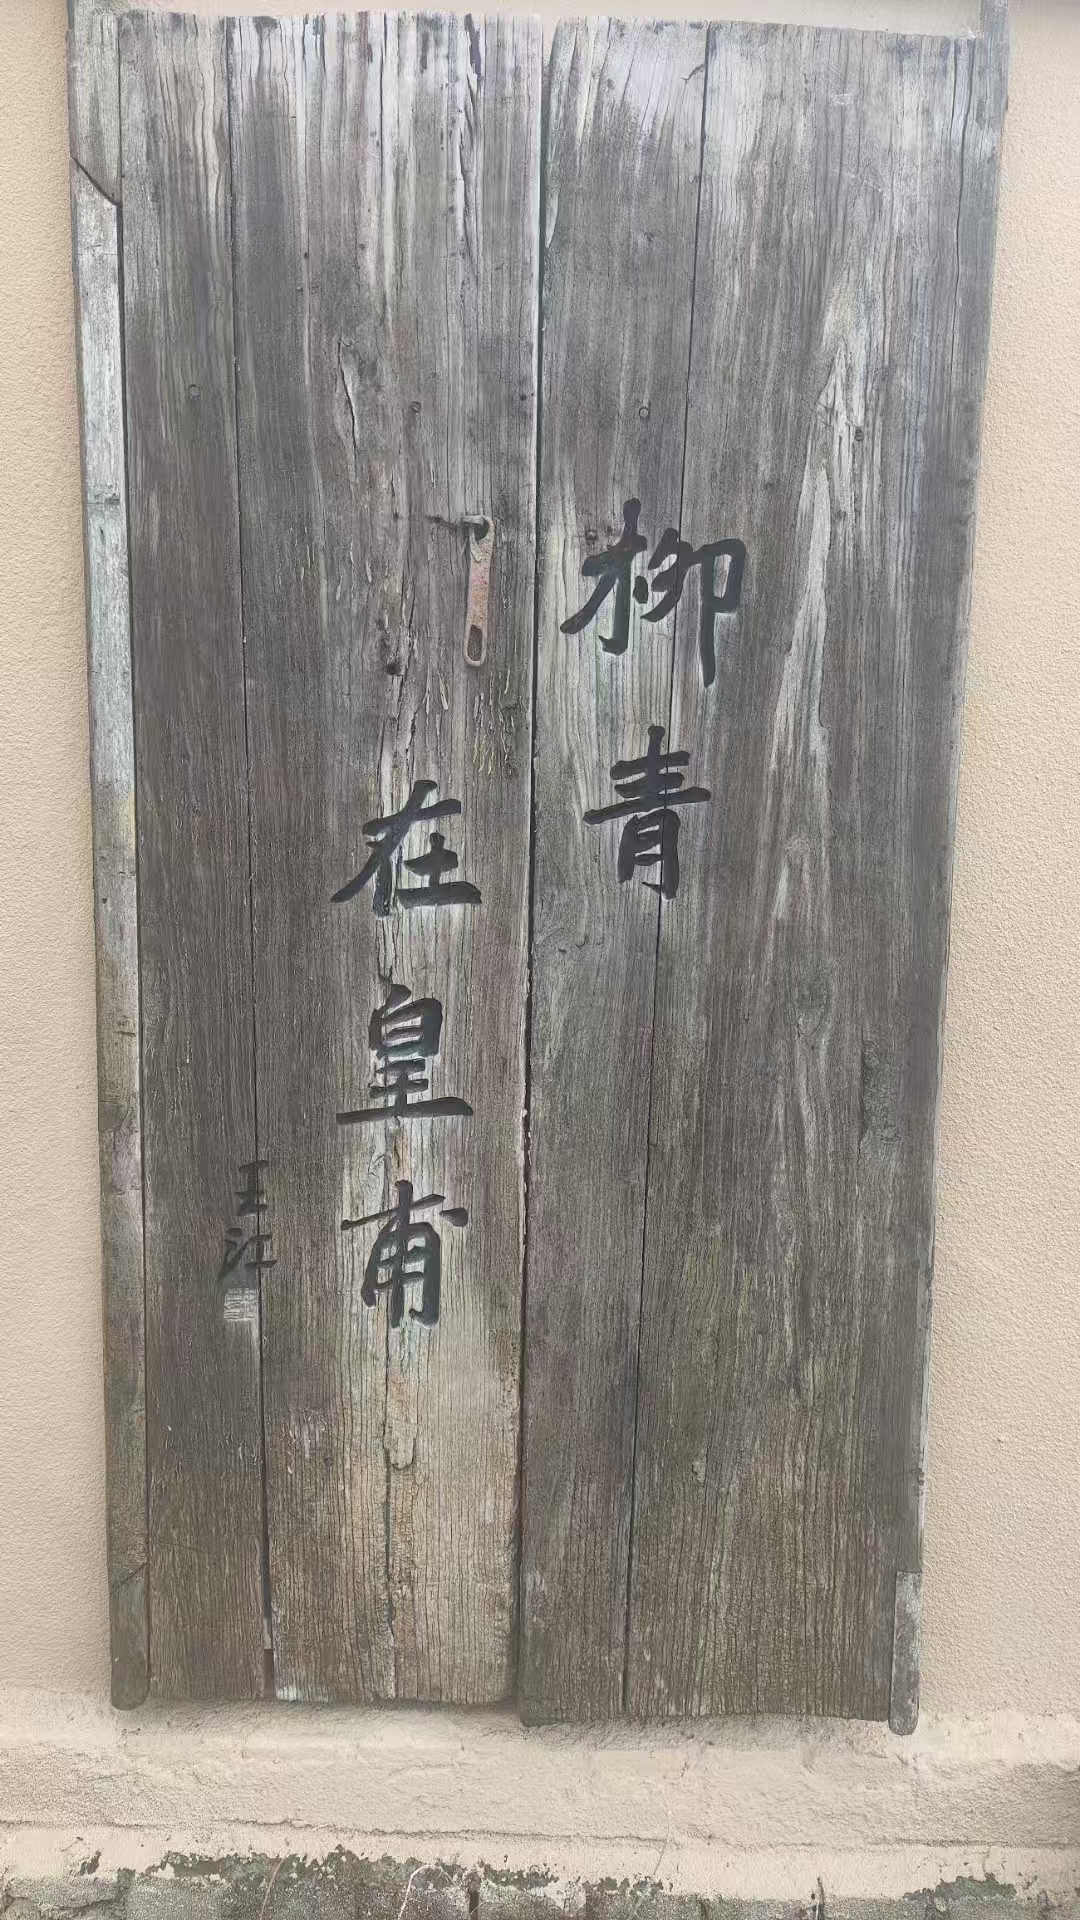 柳青
在皇甫
王江